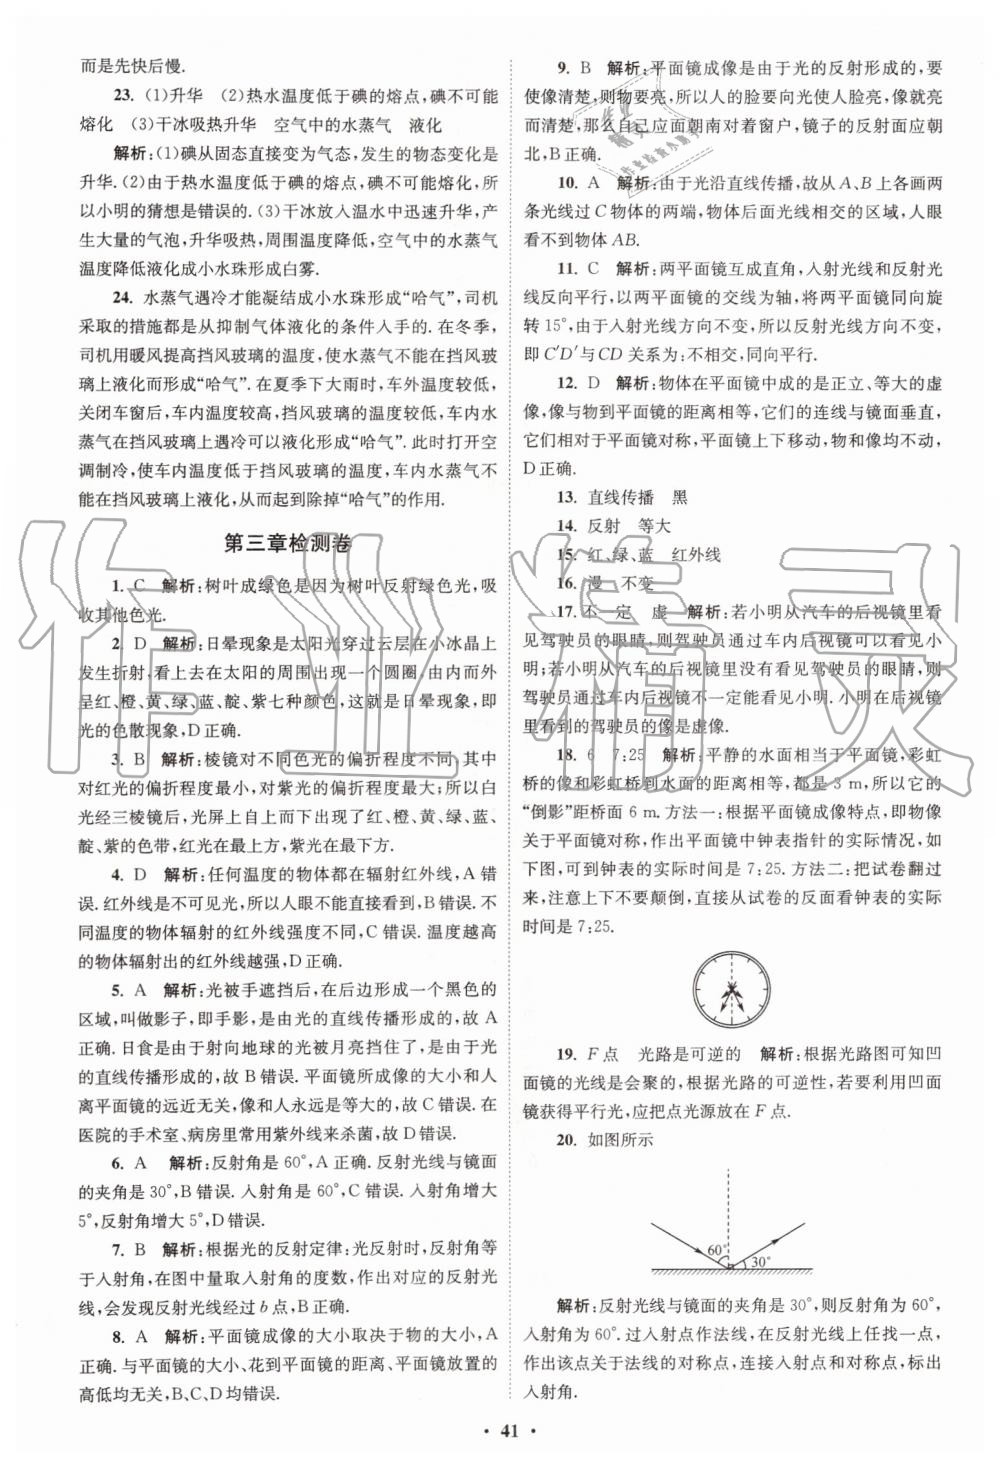 而是先快后慢.
23. (1)升华　(2)热水温度低于碘的熔点,碘不可能
熔化　(3)干冰吸热升华　空气中的水蒸气　液化
解析:(1)碘从固态直接变为气态,发生的物态变化是
升华.(2)由于热水温度低于碘的熔点,碘不可能熔化,所
以小明的猜想是错误的.(3)干冰放入温水中迅速升华,产
生大量的气泡,升华吸热,周围温度降低,空气中的水蒸气
温度降低液化成小水珠形成白雾.
24. 水蒸气遇冷才能凝结成小水珠形成“哈气”,司机
采取的措施都是从抑制气体液化的条件入手的. 在冬季,
司机用暖风提高挡风玻璃的温度,使水蒸气不能在挡风玻
璃上液化而形成“哈气”. 在夏季下大雨时,车外温度较低,
关闭车窗后,车内温度较高,挡风玻璃的温度较低,车内水
蒸气在挡风玻璃上遇冷可以液化形成“哈气”. 此时打开空
调制冷,使车内温度低于挡风玻璃的温度,车内水蒸气不
能在挡风玻璃上液化,从而起到除掉“哈气”的作用.
第三章检测卷
1. C　解析:树叶成绿色是因为树叶反射绿色光,吸
收其他色光.
2. D　解析:日晕现象是太阳光穿过云层在小冰晶上
发生折射,看上去在太阳的周围出现一个圆圈,由内而外
呈红、橙、黄、绿、蓝、靛、紫七种颜色,这就是日晕现象,即
光的色散现象,D正确.
3. B　解析:棱镜对不同色光的偏折程度不同,其中
对红光的偏折程度最小,对紫光的偏折程度最大;所以白
光经三棱镜后,光屏上自上而下出现了红、橙、黄、绿、蓝、
靛、紫的色带,红光在最上方,紫光在最下方.
4. D　解析:任何温度的物体都在辐射红外线,A错
误. 红外线是不可见光,所以人眼不能直接看到,B错误. 不
同温度的物体辐射的红外线强度不同,C错误. 温度越高
的物体辐射出的红外线越强,D正确.
5. A　解析:光被手遮挡后,在后边形成一个黑色的
区域,叫做影子,即手影,是由光的直线传播形成的,故A
正确. 日食是由于射向地球的光被月亮挡住了,是由于光
的直线传播形成的,故B错误. 平面镜所成像的大小和人
离平面镜的远近无关,像和人永远是等大的,故C错误. 在
医院的手术室、病房里常用紫外线来杀菌,故D错误.
6. A　解析:反射角是60°,A正确. 反射光线与镜面
的夹角是30°,B错误. 入射角是60°,C错误. 入射角增大
5°,反射角增大5°,D错误.
7. B　解析:根据光的反射定律:光反射时,反射角等
于入射角,在图中量取入射角的度数,作出对应的反射光
线,会发现反射光线经过b点,B正确.
8. A　解析:平面镜成像的大小取决于物的大小,A
正确. 与平面镜的大小、花到平面镜的距离、平面镜放置的
高低均无关,B、C、D均错误.
9. B　解析:平面镜成像是由于光的反射形成的,要
使像清楚,则物要亮,所以人的脸要向光使人脸亮,像就亮
而清楚,那么自己应面朝南对着窗户,镜子的反射面应朝
北,B正确.
10. A　解析:由于光沿直线传播,故从A、B上各画两
条光线过C物体的两端,物体后面光线相交的区域,人眼
看不到物体AB.
11. C　解析:两平面镜互成直角,入射光线和反射光
线反向平行,以两平面镜的交线为轴,将两平面镜同向旋
转15°,由于入射光线方向不变,所以反射光线方向不变,
即C′D′与CD关系为:不相交,同向平行.
12. D　解析:物体在平面镜中成的是正立、等大的虚
像,像与物到平面镜的距离相等,它们的连线与镜面垂直,
它们相对于平面镜对称,平面镜上下移动,物和像均不动,
D正确.
13. 直线传播　黑
14. 反射　等大
15. 红、绿、蓝　红外线
16. 漫　不变
17. 不一定　虚　解析:若小明从汽车的后视镜里看
见驾驶员的眼睛,则驾驶员通过车内后视镜可以看见小
明;若小明从汽车的后视镜里没有看见驾驶员的眼睛,则
驾驶员通过车内后视镜不一定能看见小明. 小明在后视镜
里看到的驾驶员的像是虚像.
18. 6　7:25　解析:平静的水面相当于平面镜,彩虹
桥的像和彩虹桥到水面的距离相等,都是3 m,所以它的
“倒影”距桥面6 m. 方法一:根据平面镜成像特点,即物像
关于平面镜对称,作出平面镜中钟表指针的实际情况,如
下图,可到钟表的实际时间是7:25. 方法二:把试卷翻过
来,注意上下不要颠倒,直接从试卷的反面看钟表的实际
时间是7:25.
19. F点　光路是可逆的　解析:根据光路图可知凹
面镜的光线是会聚的,根据光路的可逆性,若要利用凹面
镜获得平行光,应把点光源放在F点.
20. 如图所示
60°
30°
解析:反射光线与镜面的夹角是30°,则反射角为60°,
入射角为60°. 过入射点作法线,在反射光线上任找一点,
作出该点关于法线的对称点,连接入射点和对称点,标出
入射角.
• 41 •
作业精灵